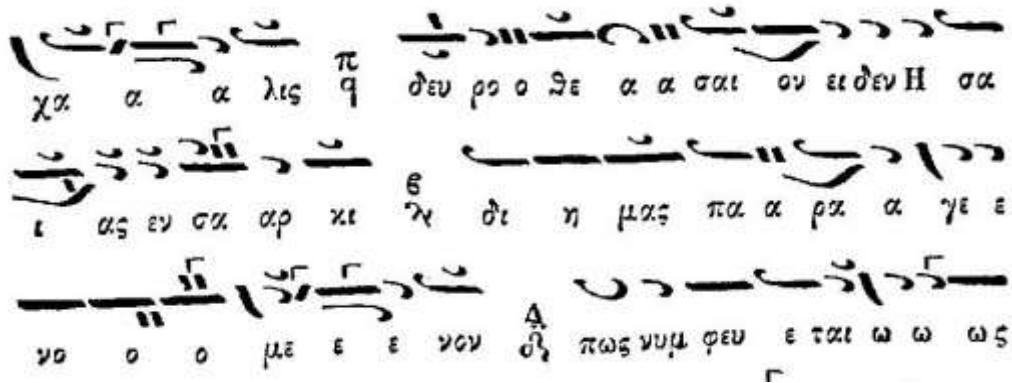 χα α α λις π ϥ δευ ρο ο θε α α σαι ον ει δεν Η σα
ι ας εν σα αρ κι δι η μας πα α ρα α γε ε
νο ο ο με ε ε νον Δ πως νυμ φευ ε ται ω ω ως